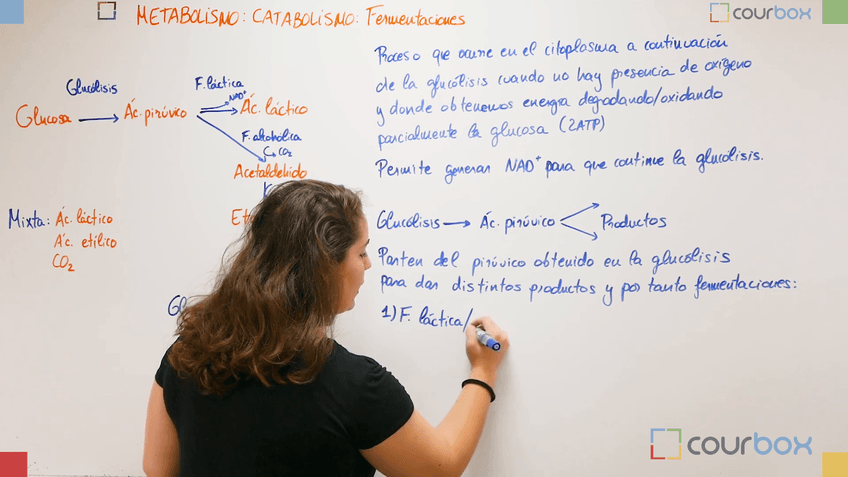 METABOLISMO: CATABOLISMO: Fermentaciones
courbox
Glucólisis
F. láctica
NAD⁺
Glucosa → Ác. pirúvico → Ác. láctico
F. alcohólica
CO₂
Acetaldehido
Mixta: Ác. láctico
Ác. etílico
CO₂
Proceso que ocurre en el citoplasma a continuación
de la glucólisis cuando no hay presencia de oxígeno
y donde obtenemos energía degradando/oxidando
parcialmente la glucosa (2ATP)
Permite generar NAD⁺ para que continúe la glucólisis.
Glucólisis → Ác. pirúvico Productos
Parten del pirúvico obtenido en la glucólisis
para dar distintos productos y por tanto fermentaciones:
1) F. láctica/
courbox